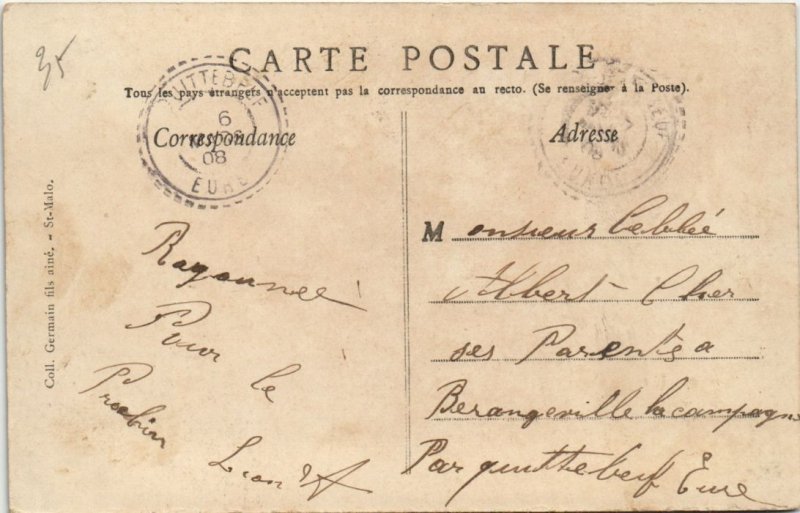 35
CARTE POSTALE
Tous les pays étrangers n'acceptent pas la correspondance au recto. (Se renseigner à la Poste).
QUITTEBEUF
6
08
EURE
Correspondance
Adresse
Coll. Germain fils aîné. - St-Malo.
Monsieur Labbé
Albert Cher
ses Parents a
Berangeville la campagne
Par quittebeuf Eure
Pour le
Prochin
Leon